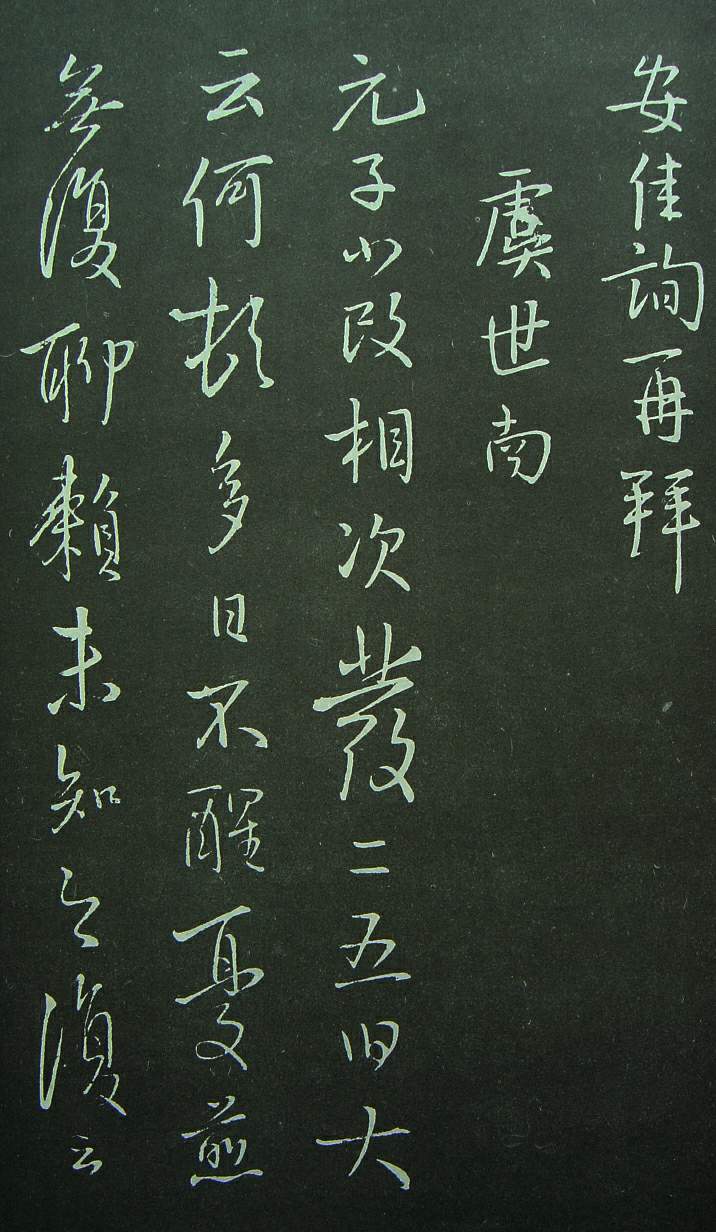 安佳詢再拜
虞世南
元子小改相次發二五日大
云何頓多日不醒憂煎
無復聊賴未知今復云